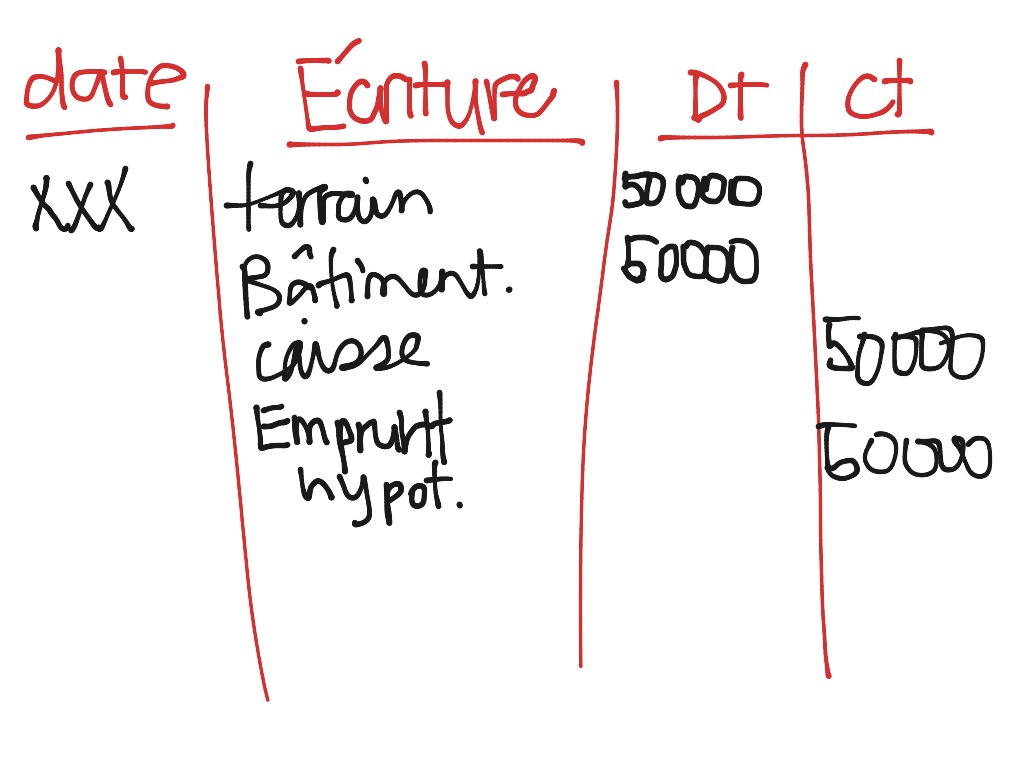 date Écriture Dt Ct
XXX terrain 50000
Bâtiment. 50000
caisse 50000
Emprunt 50000
hypot.